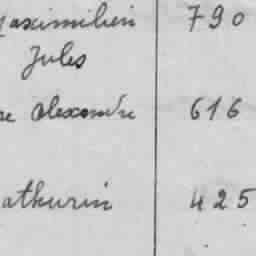 Maximilien 790
Jules
re Alexandre 616
athurin 425